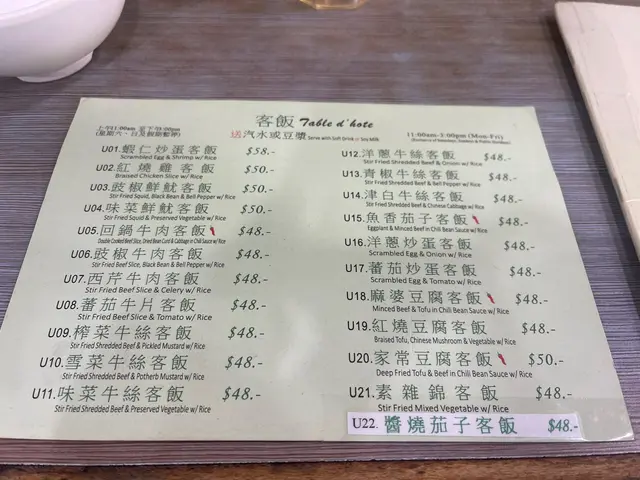 客飯 Table d'hote
上午11:00am 至下午3:00pm
(星期六、日及假期暫停)
送汽水或豆漿 Serve with Soft Drink or Soy Milk
11:00am-3:00pm (Mon-Fri)
U01.蝦仁炒蛋客飯 $58.-
Scrambled Egg & Shrimp w/ Rice
U02.紅燒雞客飯 $50.-
Braised Chicken Slice w/ Rice
U03.豉椒鮮魷客飯 $50.-
Stir Fried Squid, Black Bean & Bell Pepper w/ Rice
U04.味菜鮮魷客飯 $50.-
Stir Fried Squid & Preserved Vegetable w/ Rice
U05.回鍋牛肉客飯 $48.-
Double Cooked Beef Slice, Dried Bean Curd & Cabbage in Chili Sauce w/ Rice
U06.豉椒牛肉客飯 $48.-
Stir Fried Beef Slice, Black Bean & Bell Pepper w/ Rice
U07.西芹牛肉客飯 $48.-
Stir Fried Beef Slice & Celery w/ Rice
U08.蕃茄牛片客飯 $48.-
Stir Fried Beef Slice & Tomato w/ Rice
U09.榨菜牛絲客飯 $48.-
Stir Fried Shredded Beef & Pickled Mustard w/ Rice
U10.雪菜牛絲客飯 $48.-
Stir Fried Shredded Beef & Potherb Mustard w/ Rice
U11.味菜牛絲客飯 $48.-
Stir Fried Shredded Beef & Preserved Vegetable w/ Rice
U12.洋蔥牛絲客飯 $48.-
Stir Fried Shredded Beef & Onion w/ Rice
U13.青椒牛絲客飯 $48.-
Stir Fried Shredded Beef & Bell Pepper w/ Rice
U14.津白牛絲客飯 $48.-
Stir Fried Shredded Beef & Chinese Cabbage w/ Rice
U15.魚香茄子客飯 $48.-
Eggplant & Minced Beef in Chili Bean Sauce w/ Rice
U16.洋蔥炒蛋客飯 $48.-
Scrambled Egg & Onion w/ Rice
U17.蕃茄炒蛋客飯 $48.-
Scrambled Egg & Tomato w/ Rice
U18.麻婆豆腐客飯 $48.-
Minced Beef & Tofu in Chili Bean Sauce w/ Rice
U19.紅燒豆腐客飯 $48.-
Braised Tofu, Chinese Mushroom & Vegetable w/ Rice
U20.家常豆腐客飯 $50.-
Deep Fried Tofu & Beef in Chili Bean Sauce w/ Rice
U21.素雜錦客飯 $48.-
Stir Fried Mixed Vegetable w/ Rice
U22.醬燒茄子客飯 $48.-